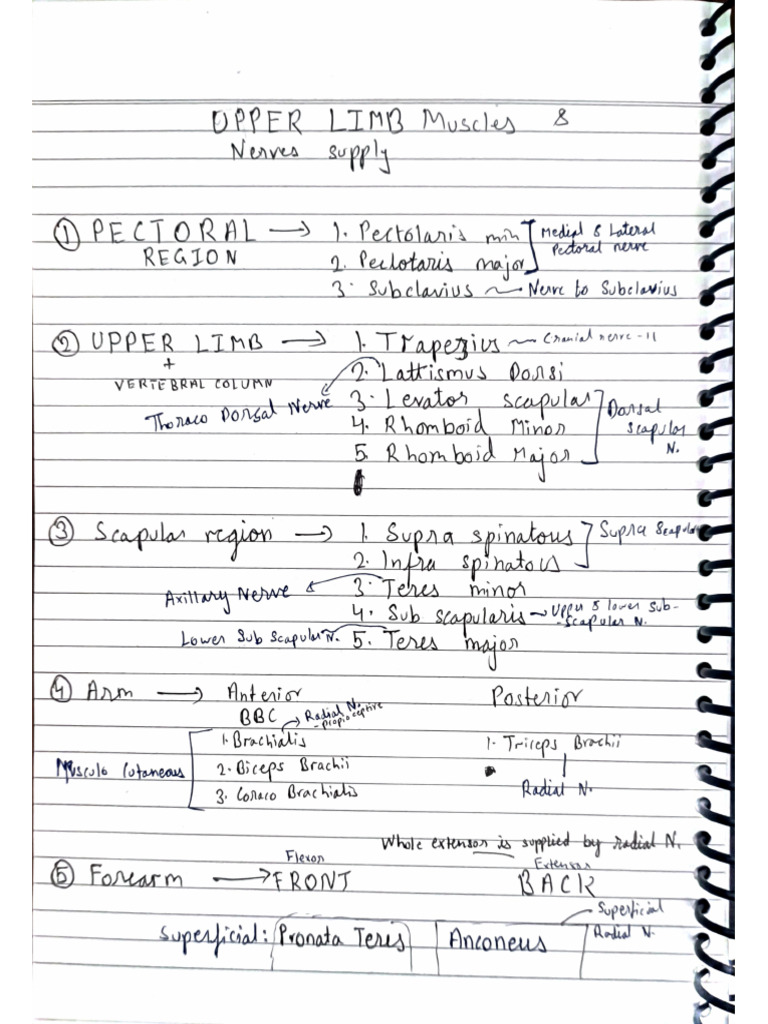 UPPER LIMB Muscles &
Nerves supply
① PECTORAL → 1. Pectolaris min ] Medial & Lateral Pectoral nerve
REGION 2. Peclotaris major
3. Subclavius ~ Nerve to Subclavius
② UPPER LIMB → 1. Trapezius ~ Cranial nerve - 11
+ 2. Lattismus Dorsi
VERTEBRAL COLUMN
Thoraco Dorsal Nerve 3. Levator scapular ] Dorsal scapular N.
4. Rhomboid Minor
5. Rhomboid Major
③ Scapular region → 1. Supra spinatous ] Supra Scapular
2. Infra spinatous
Axillary Nerve 3. Teres minor
4. Sub scapularis ~ Upper & lower Sub-
-scapular N.
Lower Sub Scapular N. 5. Teres major
④ Arm → Anterior Posterior
BBC → Radial N.
- propioceptive
1. Brachialis 1. Triceps Brachii
Musculo Cutaneous 2. Biceps Brachii
3. Coraco Brachialis Radial N.
Whole extensor is supplied by radial N.
Flexor Extensor
⑤ Forearm → FRONT BACK
Superficial
Superficial: Pronata Teres Anconeus Radial N.